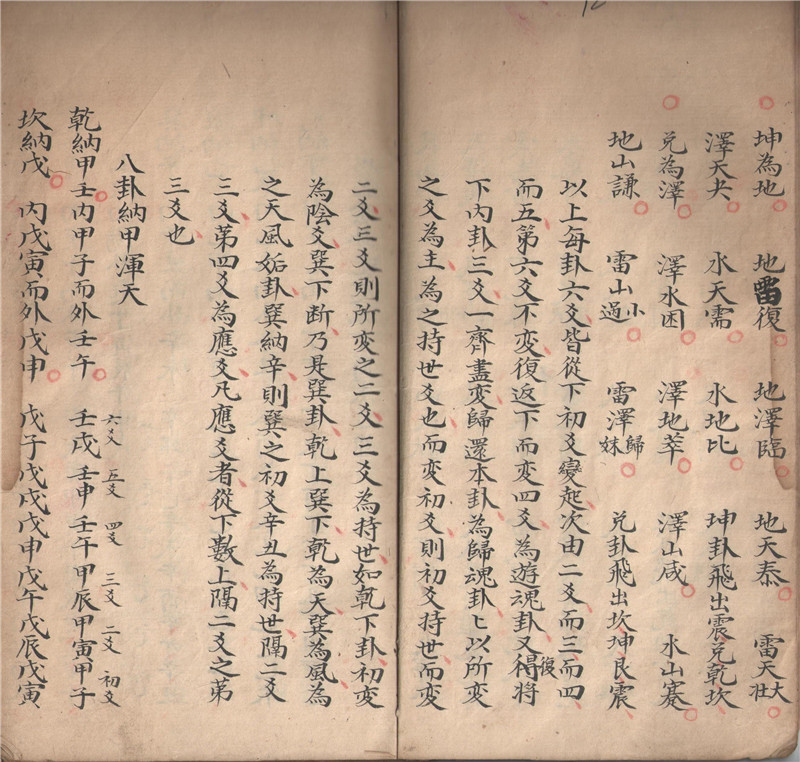 坤為地 地雷復 地澤臨 地天泰 雷天大壯
澤天夬 水天需 水地比 坤卦飛出震兌乾坎
兌為澤 澤水困 澤地萃 澤山咸 水山蹇
地山謙 雷山小過 雷澤歸妹 兌卦飛出坎坤艮震
以上每卦六爻皆從下初爻變起次由二爻而三而四
而五第六爻不变復返下而变四爻為遊魂卦又復得將
下內卦三爻一齊盡变歸還本卦為歸魂卦匕以所变
之爻為主為之持世爻也而变初爻則初爻持世而变
二爻三爻則所变之二爻三爻為持世如乾下卦初变
為陰爻巽下断乃是巽卦乾上巽下乾為天巽為風為
之天風姤卦巽納辛則巽之初爻辛丑為持世隔二爻
三爻第四爻為應爻凡應爻者從下數上隔二爻之第
三爻也
八卦納甲渾天
六爻 五爻 四爻 三爻 二爻 初爻
乾納甲壬內甲子而外壬午 壬戌壬申壬午甲辰甲寅甲子
坎納戊 內戊寅而外戊申 戊子戊戌戊申戊午戊辰戊寅